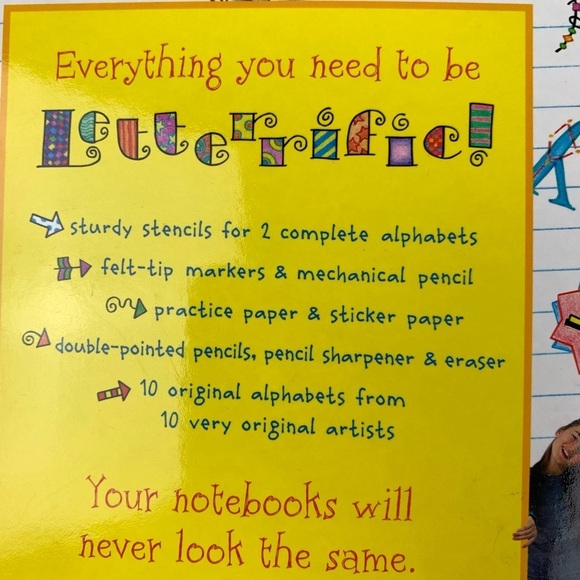 Everything you need to be
Letterrific!
sturdy stencils for 2 complete alphabets
felt-tip markers & mechanical pencil
practice paper & sticker paper
double-pointed pencils, pencil sharpener & eraser
10 original alphabets from
10 very original artists
Your notebooks will
never look the same.